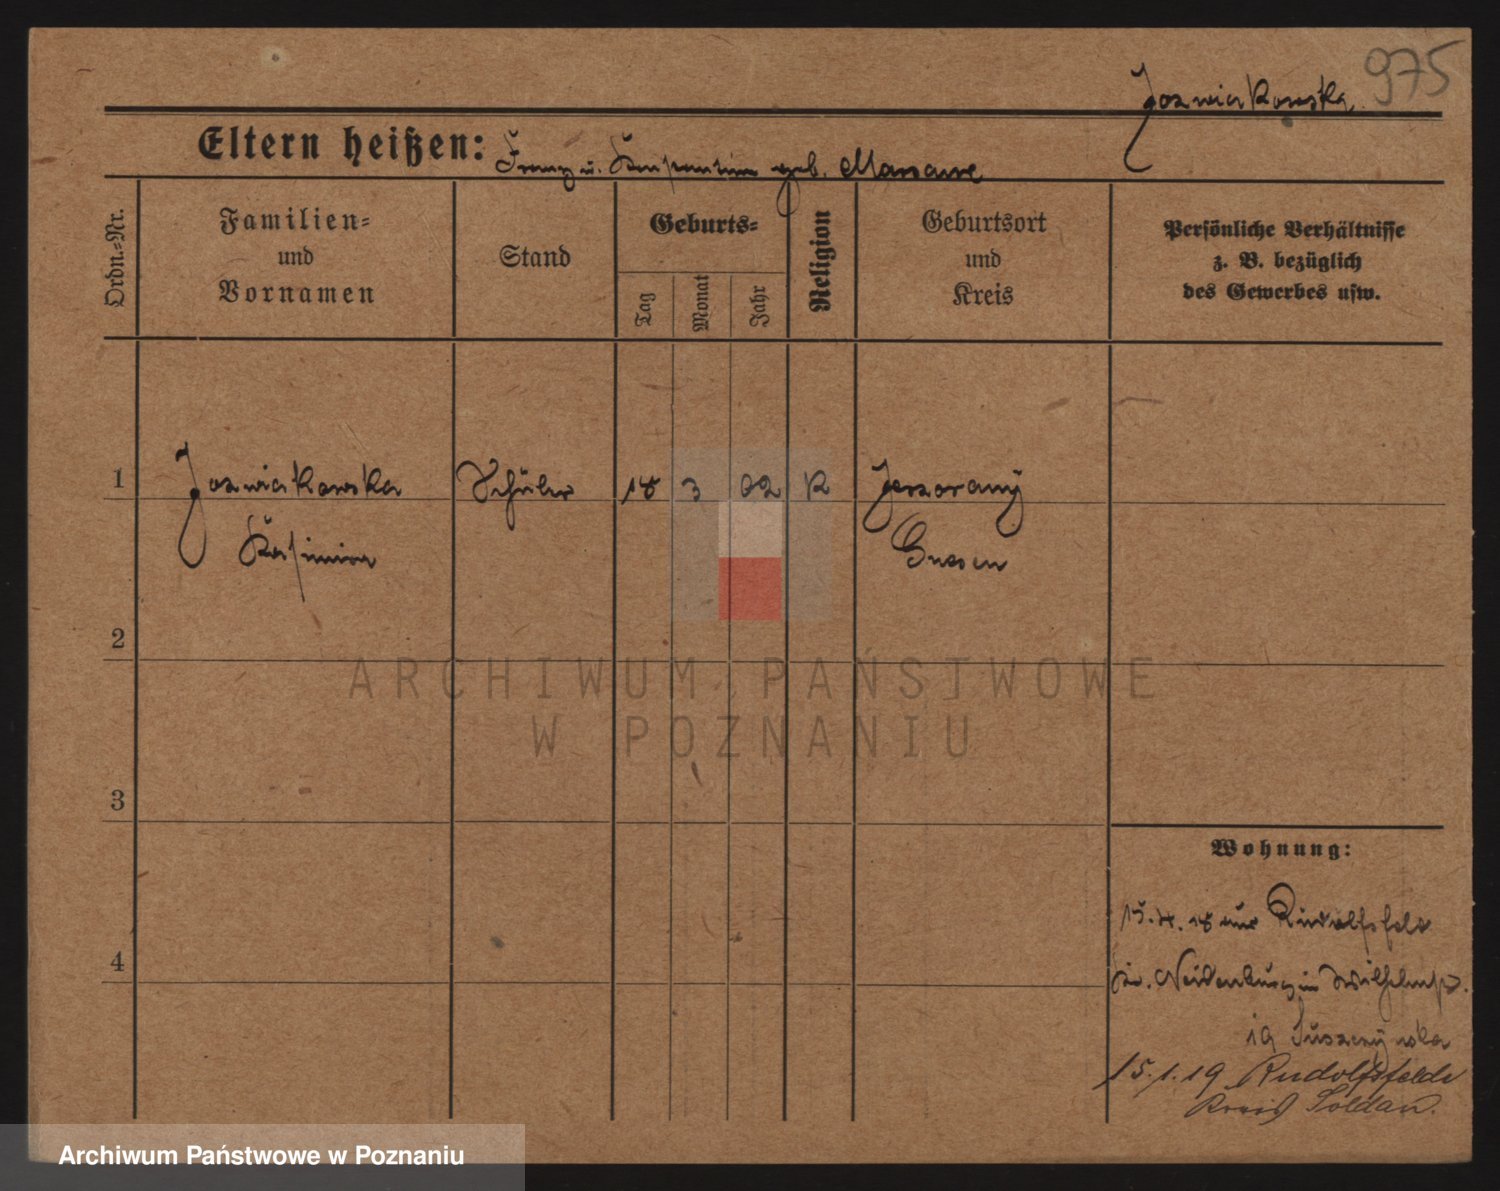 975
Jozwiakowska
Eltern heißen: Franz u. geb.
Ordn.=Nr.
Familien=
und
Vornamen
Stand
Geburts=
Tag
Monat
Jahr
Religion
Geburtsort
und
Kreis
Persönliche Verhältnisse
z. B. bezüglich
des Gewerbes usw.
1 Jozwiakowska Schüler 18 3 02 K
Kasimira Gnesen
2
3
4
Wohnung:
15.4.18 aus Rudolfsfeld
Kr. Neidenburg in
19
15.1.19 Rudolfsfelde
Kreis Soldau.
ARCHIWUM PAŃSTWOWE
W POZNANIU
Archiwum Państwowe w Poznaniu